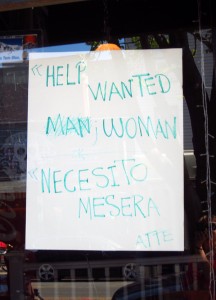 "HELP
WANTED
MAN; WOMAN
"NECESITO
MESERA
ATTE